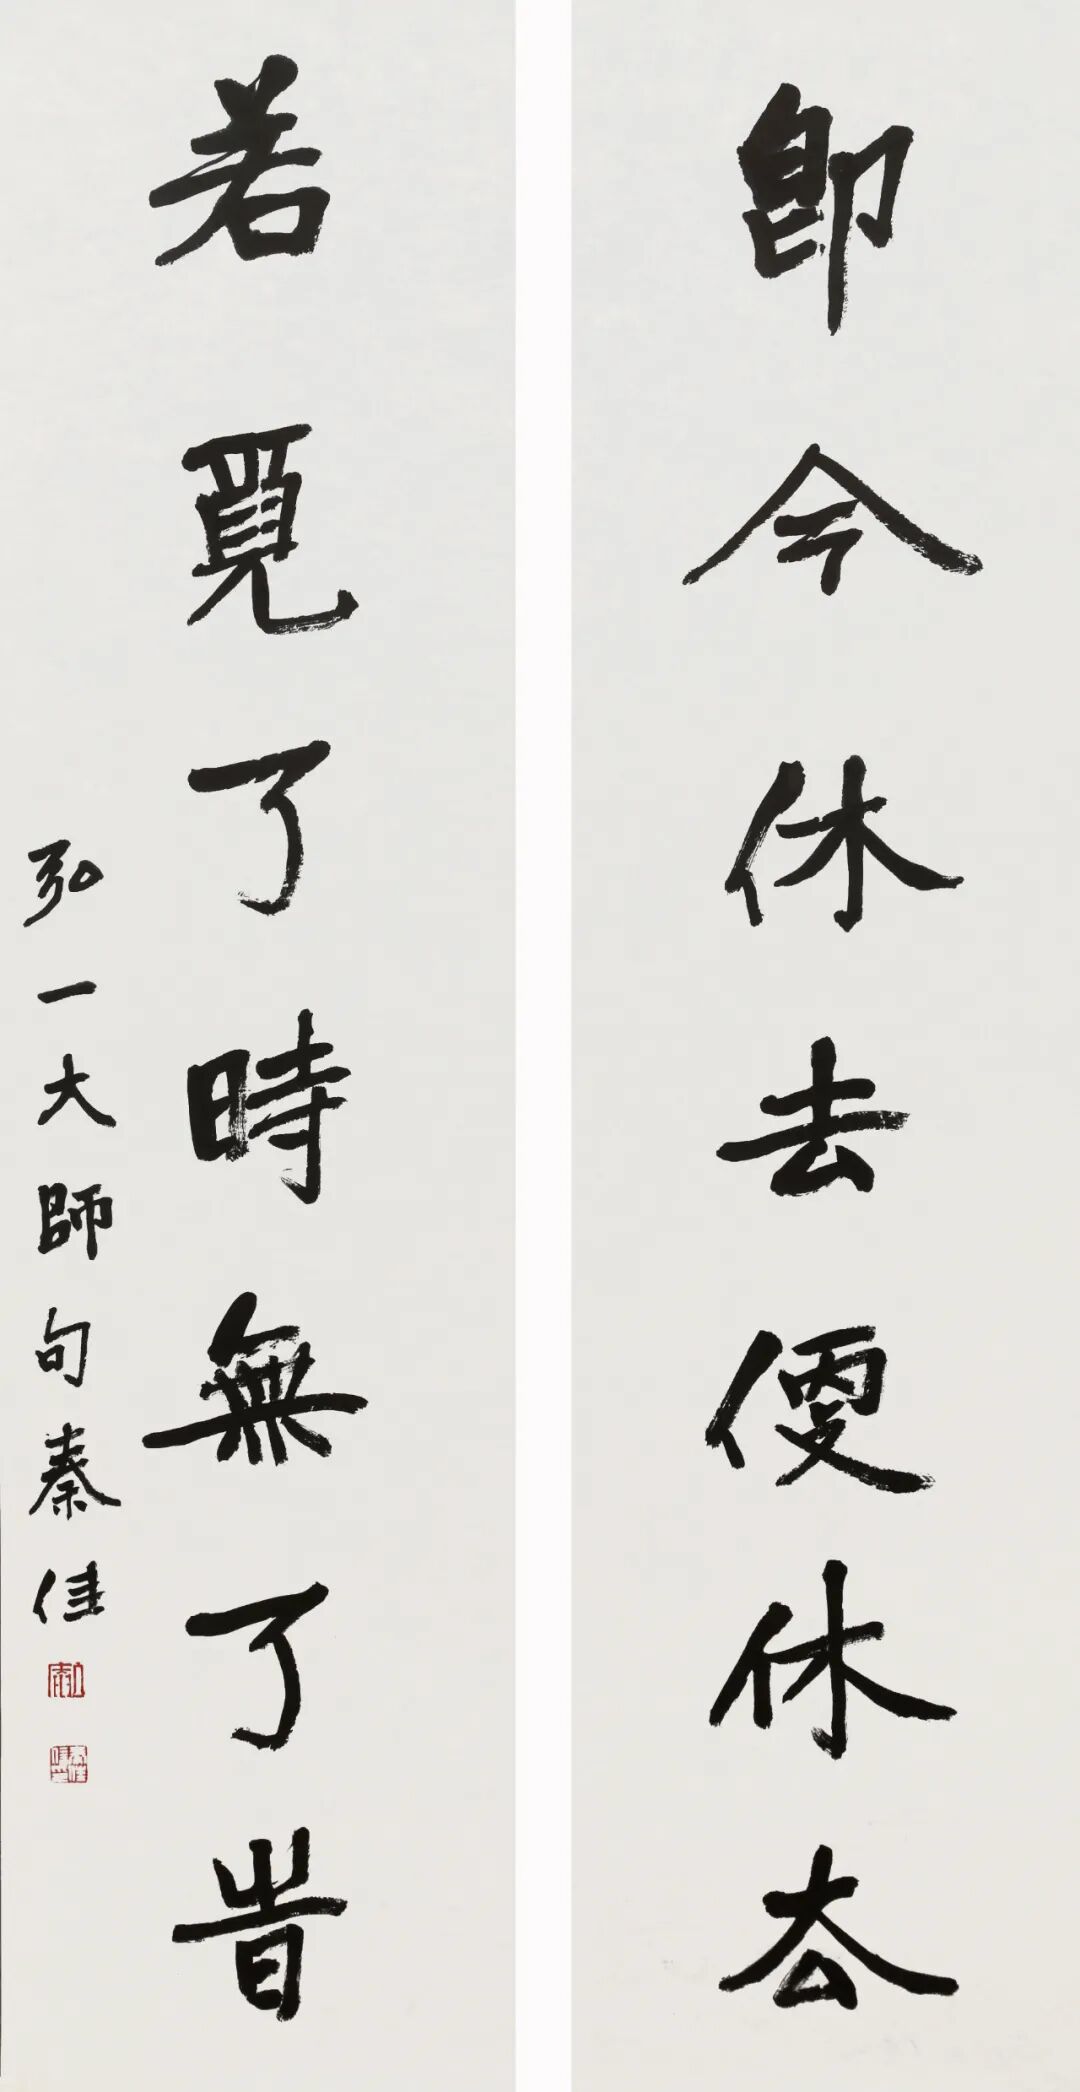 即今休去便休去
若覓了時無了時
弘一大師句秦佳